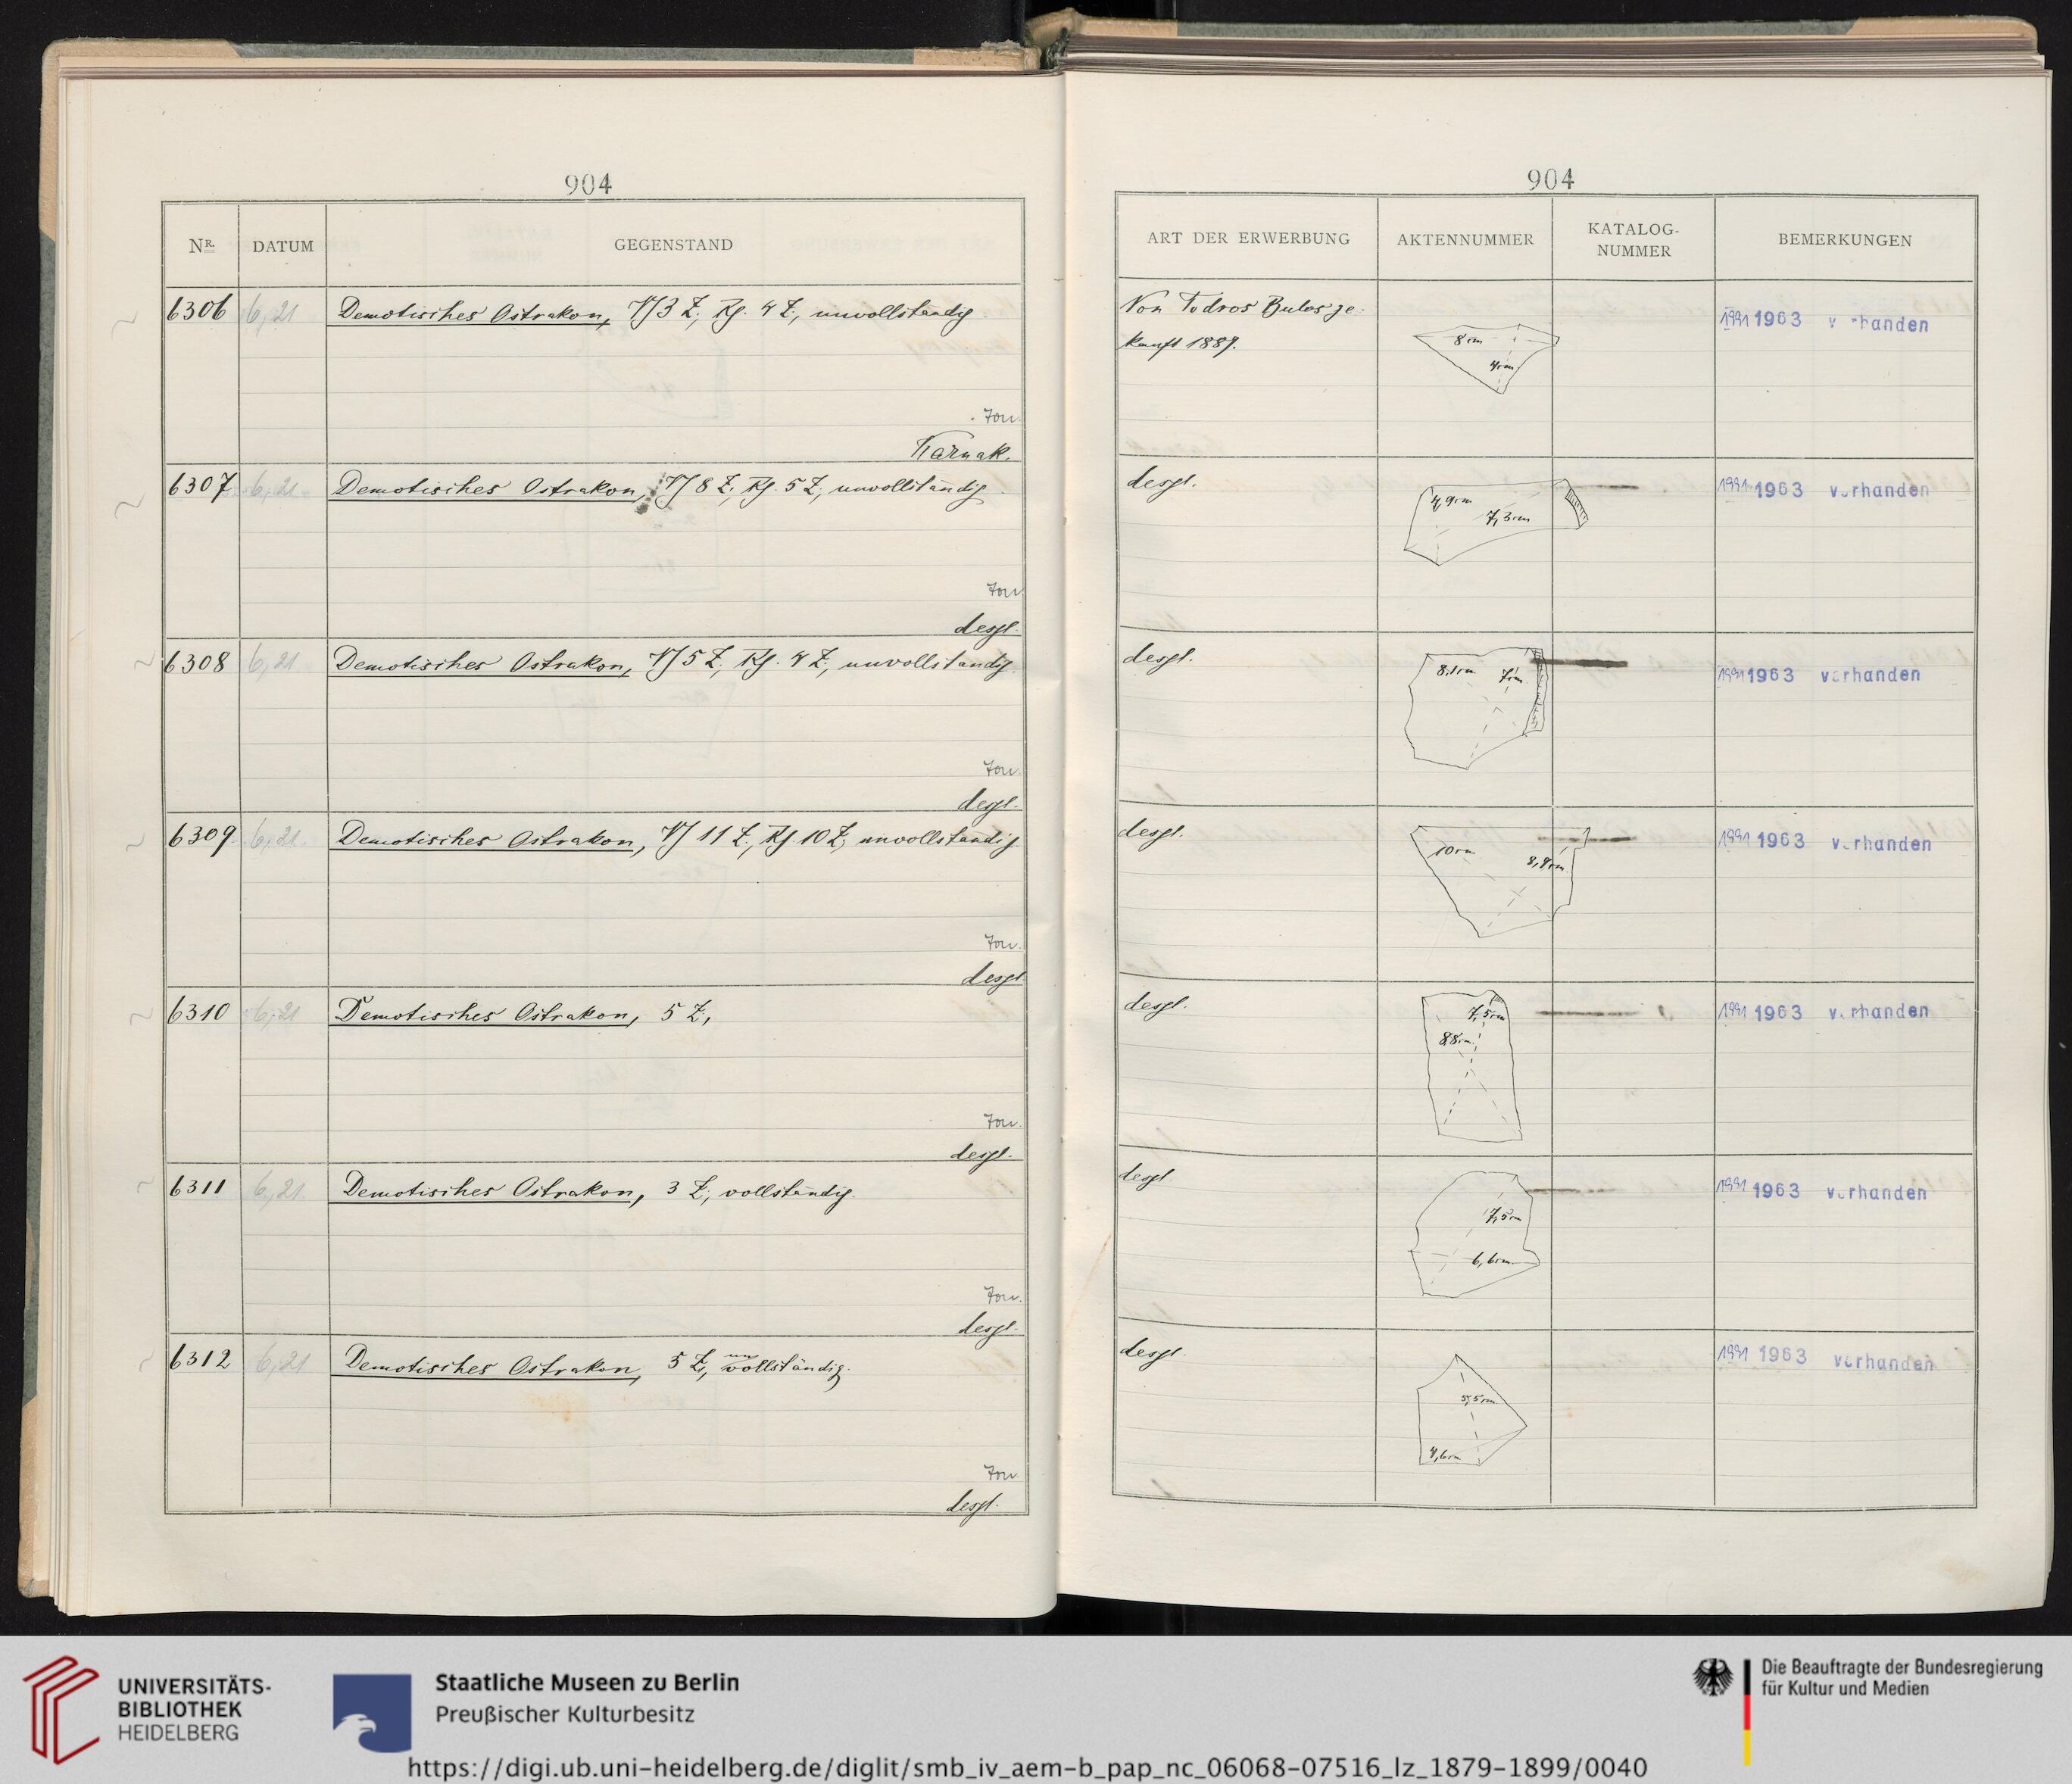 904
Nr. DATUM GEGENSTAND
6306 6,21 Demotisches Ostrakon, Vs 3 Z., Rs. 4 Z., unvollständig
Ton.
Karnak.
6307 6,21 Demotisches Ostrakon, Vs 8 Z. Rs. 5 Z., unvollständig
Ton
desgl.
6308 6,21 Demotisches Ostrakon, Vs 5 Z., Rs. 4 Z., unvollständig.
Ton
desgl.
6309. 6,21. Demotisches Ostrakon, Vs 11 Z., Rs. 10 Z, unvollständig
Ton.
desgl.
6310 6,21 Demotisches Ostrakon, 5 Z,
Ton.
desgl.
6311 6,21 Demotisches Ostrakon, 3 Z., vollständig.
Ton.
desgl.
6312 6,21 Demotisches Ostrakon, 5 Z., unvollständig.
Ton
desgl.
904
ART DER ERWERBUNG AKTENNUMMER KATALOG-
NUMMER BEMERKUNGEN
Von Todros Bulos ge-
kauft 1889.
8 cm
4 cm
1991 1963 v rhanden
desgl.
4,9 cm
7,3 cm
1991 1963 vorhanden
desgl.
8,1 cm 7 cm
1991 1963 vorhanden
desgl.
10 cm
8,8 cm
1991 1963 vorhanden
desgl.
7,5 cm
8,8 cm
1991 1963 vorhanden
desgl
7,5 cm
6,6 cm
1991 1963 vorhanden
desgl.
5,5 cm
4,6 cm
1991 1963 vorhanden
UNIVERSITÄTS-
BIBLIOTHEK
HEIDELBERG
Staatliche Museen zu Berlin
Preußischer Kulturbesitz
Die Beauftragte der Bundesregierung
für Kultur und Medien
https://digi.ub.uni-heidelberg.de/diglit/smb_iv_aem-b_pap_nc_06068-07516_lz_1879-1899/0040